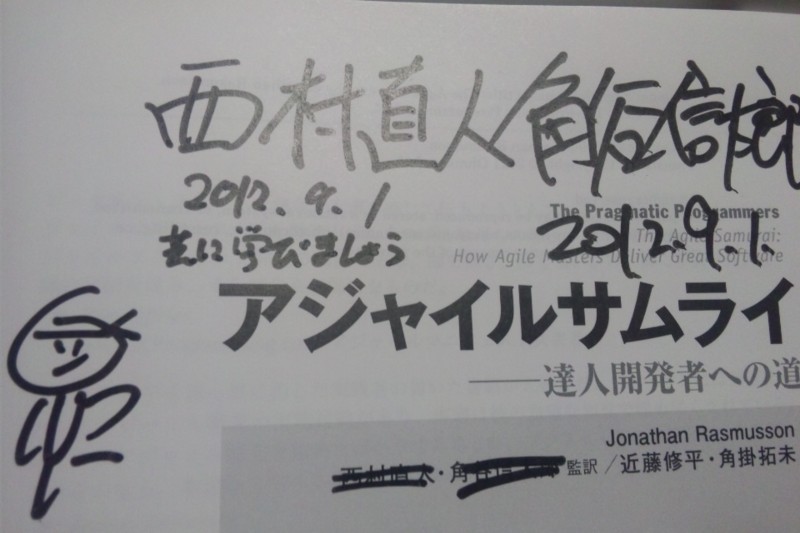 西村直人 角谷信
2012.9.1
共に学びましょう
2012.9.1.
The Pragmatic Programmers
The Agile Samurai:
How Agile Masters Deliver Great Software
アジャイルサムライ
——達人開発者への道
Jonathan Rasmusson
西村直人・角谷信太郎 監訳／近藤修平・角掛拓未